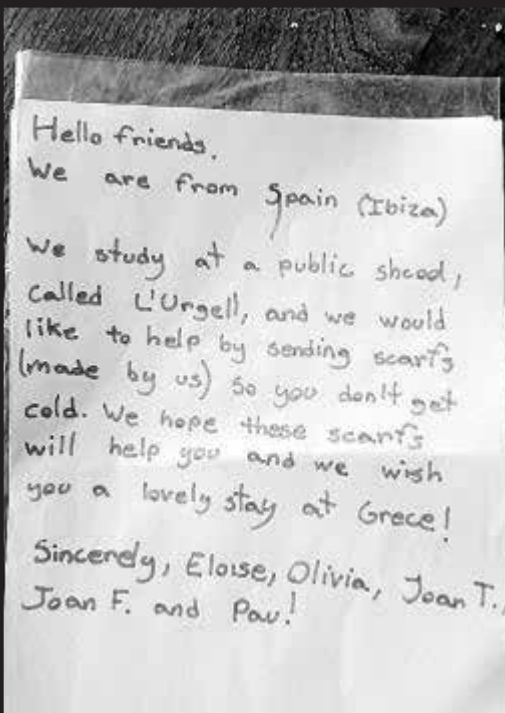 Hello friends.
We are from Spain (Ibiza)
We study at a public shcool,
called L'Urgell, and we would
like to help by sending scarfs
(made by us) so you don't get
cold. We hope these scarfs
will help you and we wish
you a lovely stay at Grece!
Sincerely, Eloise, Olivia, Joan T.,
Joan F. and Pau!